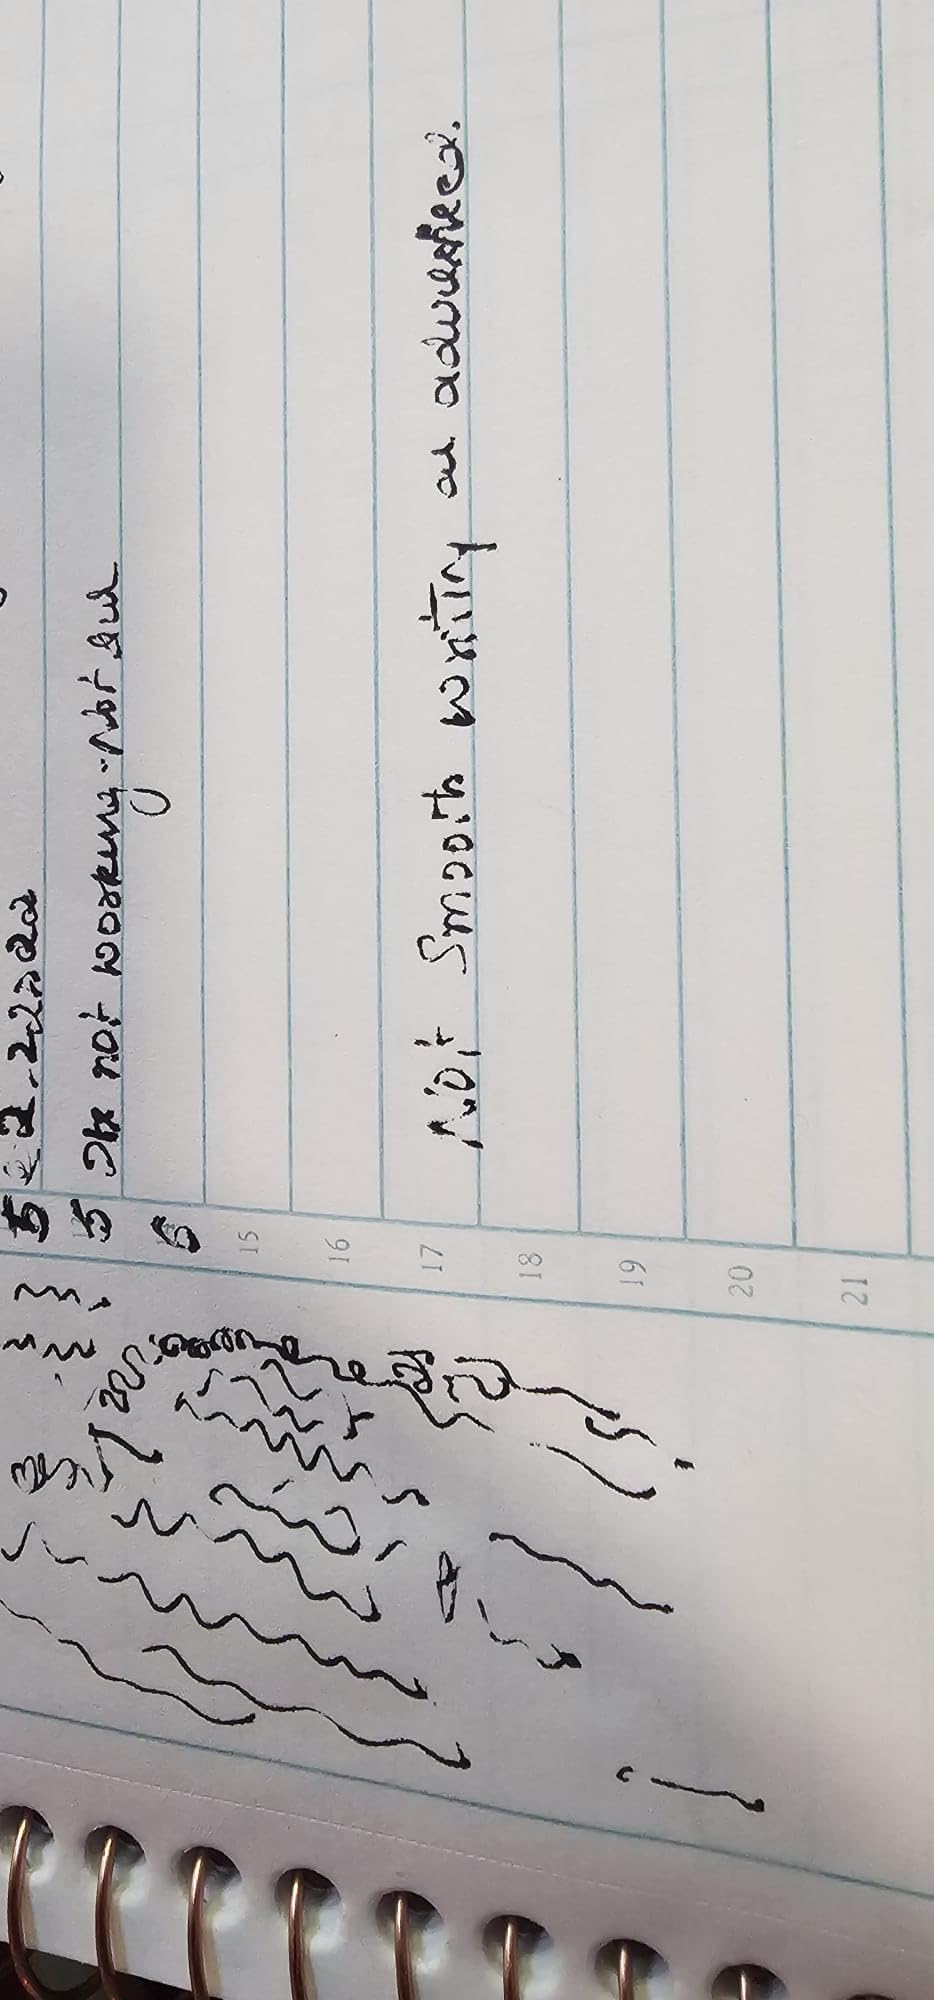 5
5 not working. Not
6
15
16
17 Not Smooth writing as advertised.
18
19
20
21